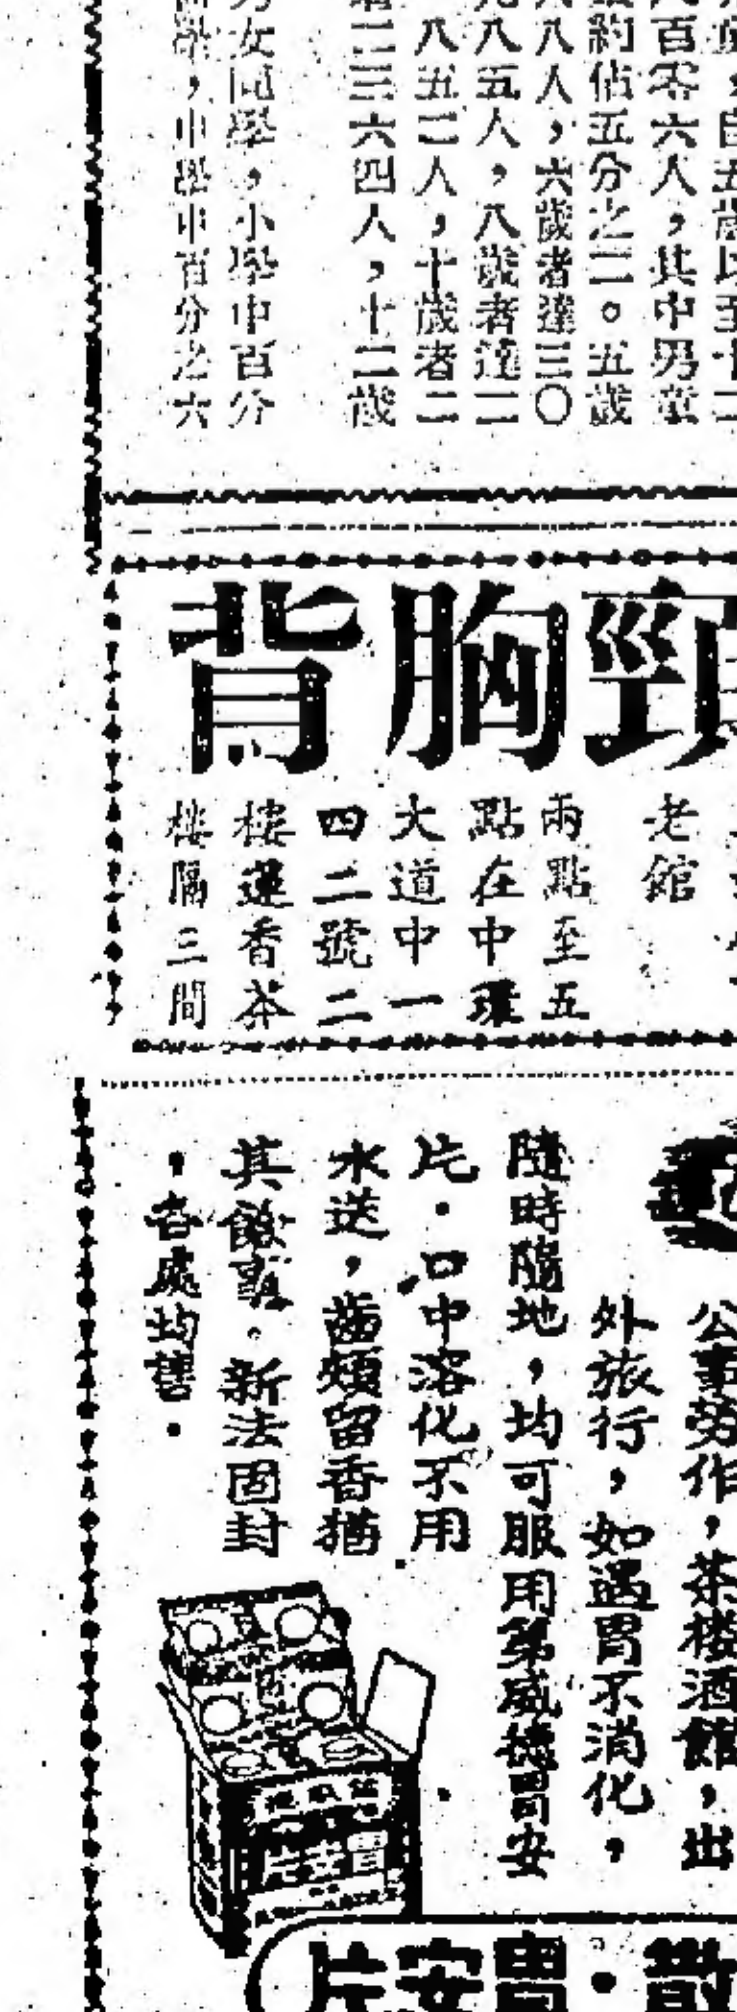 百零六人，其中男童
約佔五分之二。五歲
八人，六歲者達三〇
八五人，八歲者達二
八五二人，十歲者二
二三六四人，十二歲
男女同學，小學中百分
學，中學中百分之六
頸胸背
老館
兩點至五
點在中環
大道中一
四二號二
樓蓮香茶
樓隔三間
公事勞作，茶樓酒館，出
外旅行，如遇胃不消化，
隨時隨地，均可服用第威德胃安
片．口中溶化不用
水送，齒頰留香猶
其餘事．新法固封
，各處均售．
胃安片
散・胃安片